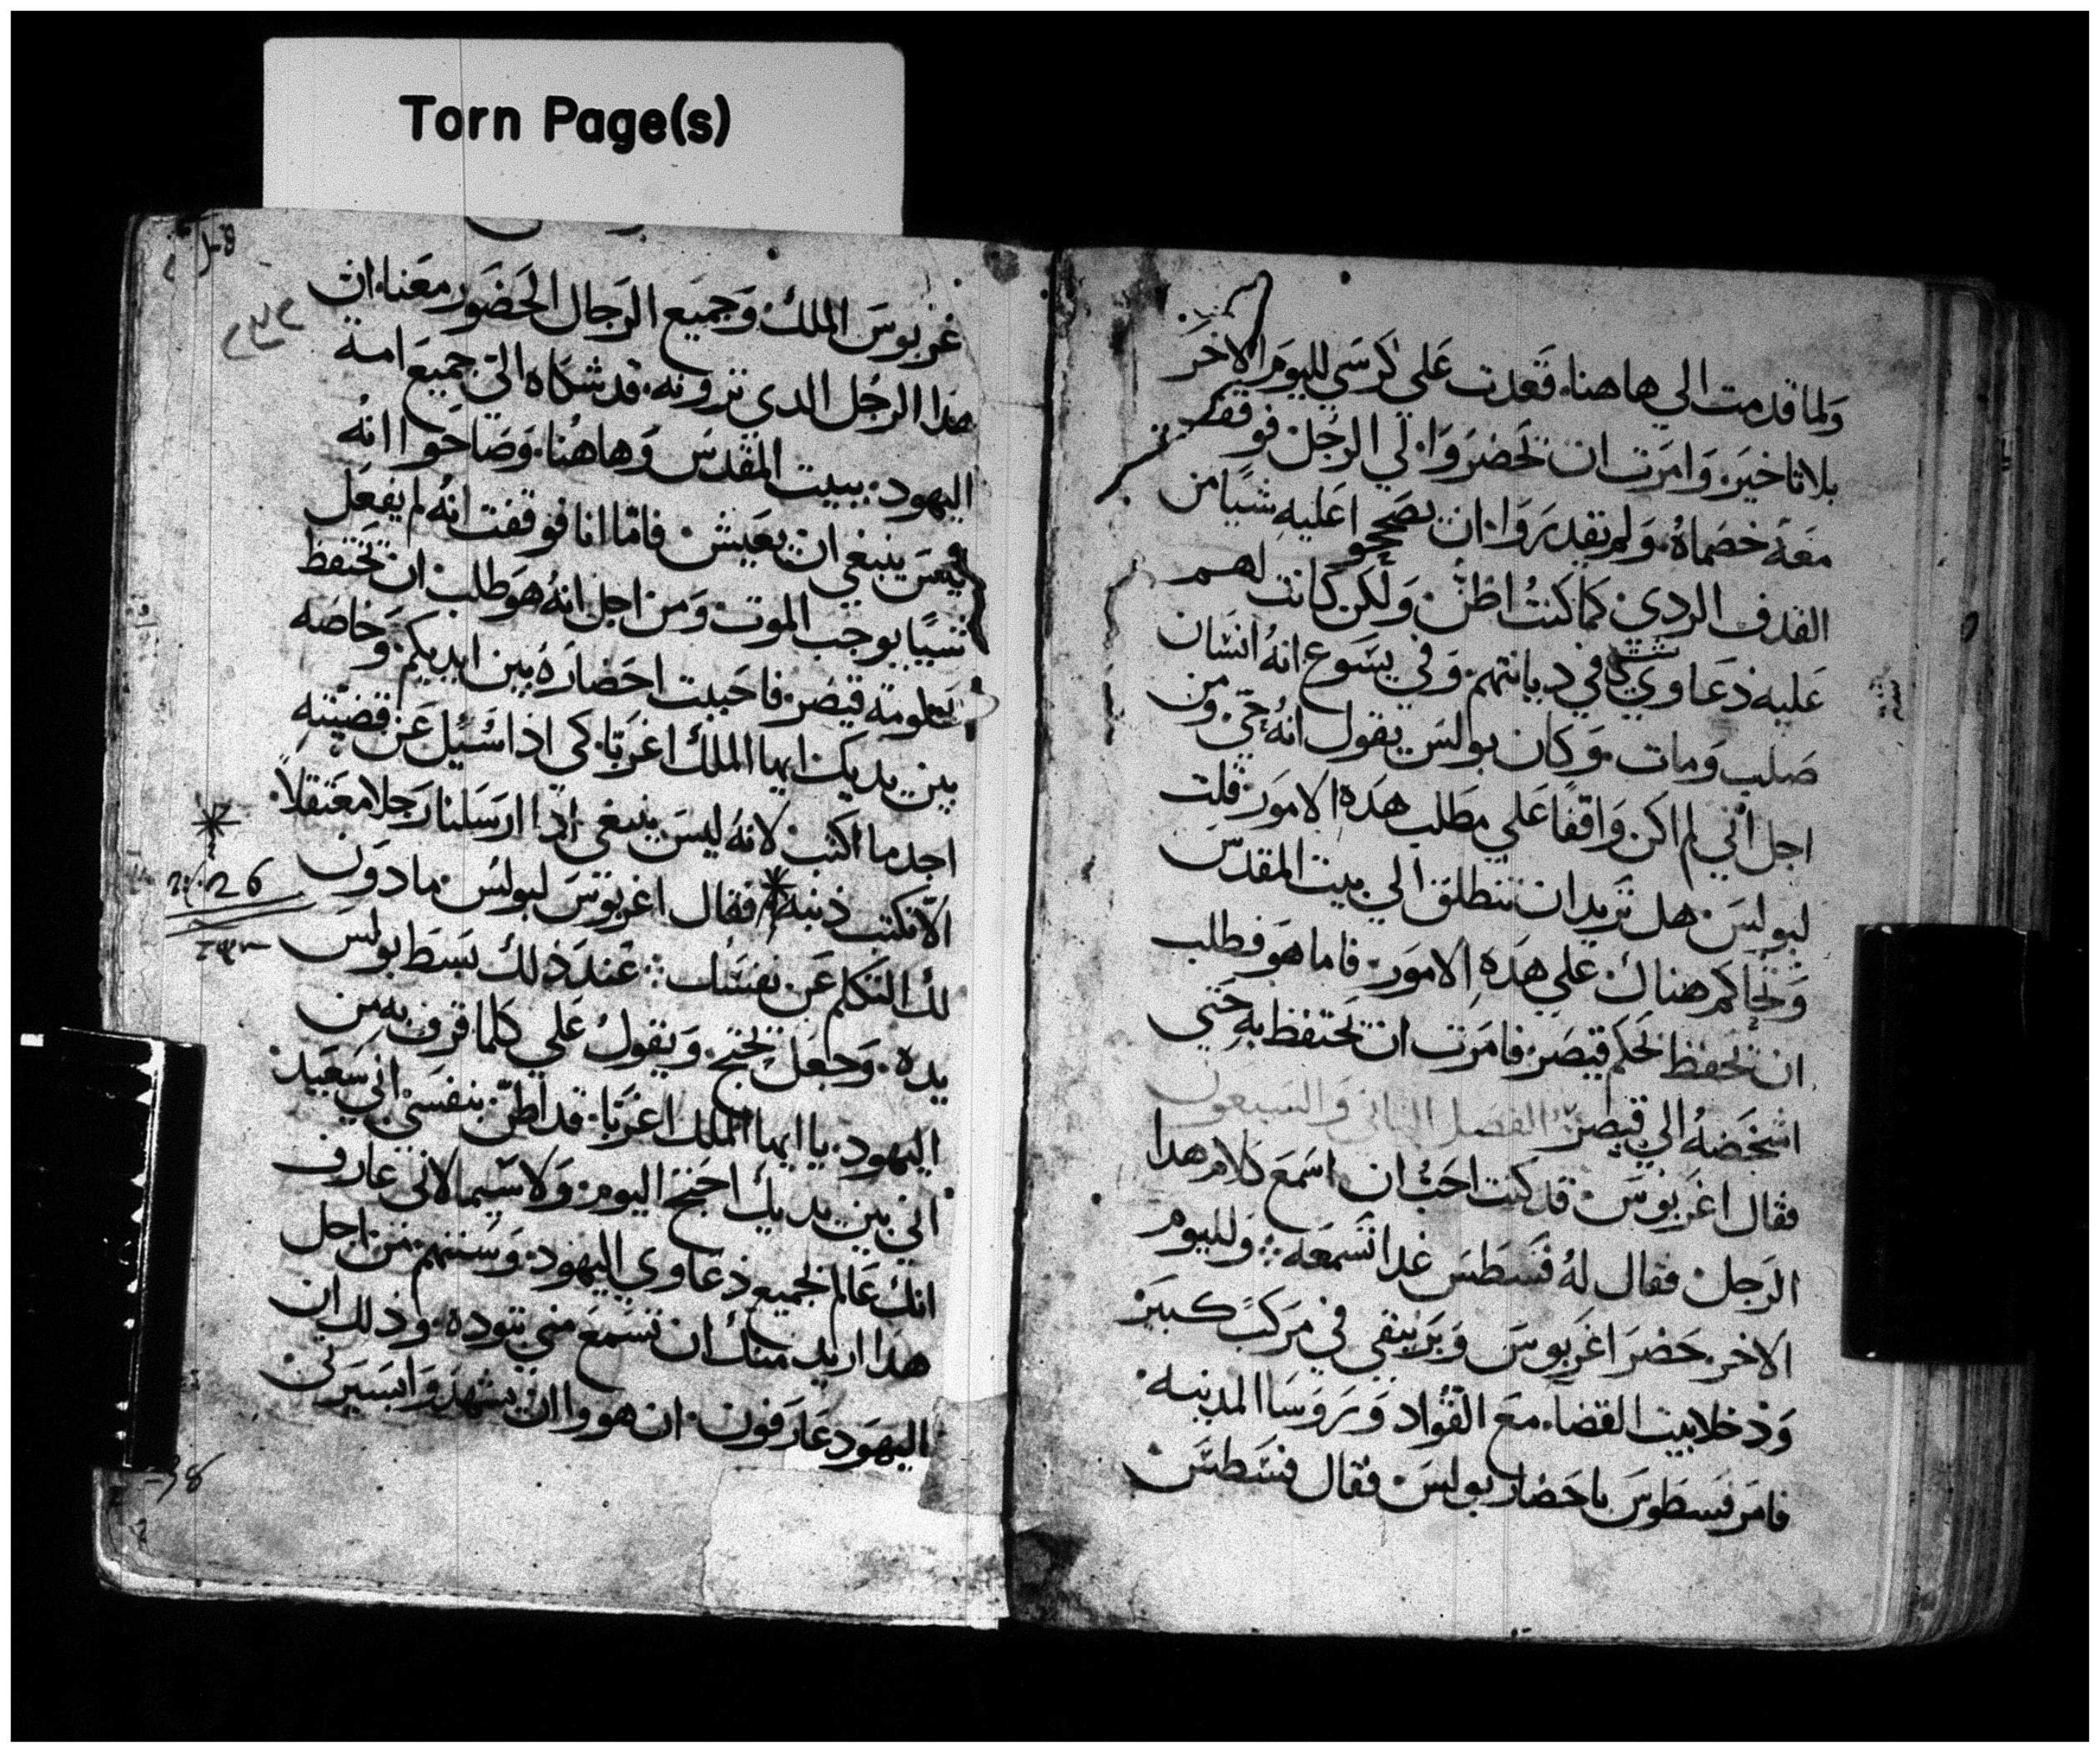 Torn Page(s)
ولما قدمت الي هاهنا. قعدت علي كرسي لليوم الاخر
بلا تاخير. وامرت ان تحضروا لي الرجل. فوقف
معه خصماه. ولم يقدروا. ان يصححوا عليه شيا من
القدف الردي. كما كنت اظن. ولكن كانت لهم
عليه دعاوي في ديانتهم. وفي يسوع انه انسان
صلب ومات. وكان بولس يقول انه حي ومن
اجل انني لم اكن واقفا علي مطلب هده الامور. قلت
لبولس. هل تريد ان تنطلق الي بيت المقدس
وتحاكم هناك علي هده الامور. فاما هو فطلب
ان يحفظ لحكم قيصر. فامرت ان يحتفظ به حتي
اشخصه الي قيصر الفصل الثاني والسبعون
فقال اغربوس. قد كنت احب ان اسمع كلام هدا
الرجل. فقال له فسطس غدا تسمعه. ولليوم
الاخر. حضر اغربوس وبرنيقي في مركب كبير
ودخلا بيت القضاء مع القواد وروسا المدينه.
فامر فسطوس باحضار بولس. فقال فسطس.
غربوس الملك. وجميع الرجال الحضور معنا. ان
هدا الرجل الدي ترونه. قد شكاه الي جميع امة
اليهود. ببيت المقدس وهاهنا. وصاحوا انه
ليس ينبغي ان يعيش. فامّا انا فوقفت انه لم يفعل
شيا يوجب الموت. ومن اجل انه هو طلب ان يحتفظ
لحكومة قيصر. فاحببت احضاره بين ايديكم. وخاصه
بين يديك ايها الملك اغربا. كي اذا سئل عن قضيته
اجد ما اكتب. لانه ليس ينبغي اذا ارسلنا رجلا معتقلا.
الّا نكتب ذنبه فقال اغربوس لبولس. مادون
لك التكلم عن نفسك. عند ذلك بسط بولس
يده. وجعل يحتج. ويقول علي كلما قرف به من
اليهود. يا ايها الملك اغربا. قد اظن بنفسي اني سعيد.
اني بين يديك احتج اليوم. ولا سيما لاني عارف
انك عالم لجميع دعاوي اليهود. وسننهم. من اجل
هدا اريد منك ان تسمع مني بتوده. وذلك ان
اليهود عارفون. ان هووا ان يشهدوا بسيرتي.
26